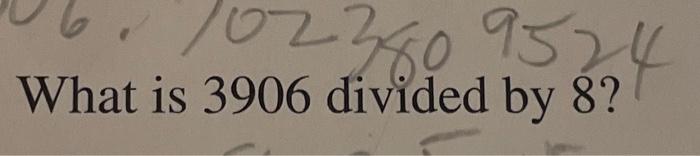 06. 702380 9524
What is 3906 divided by 8?